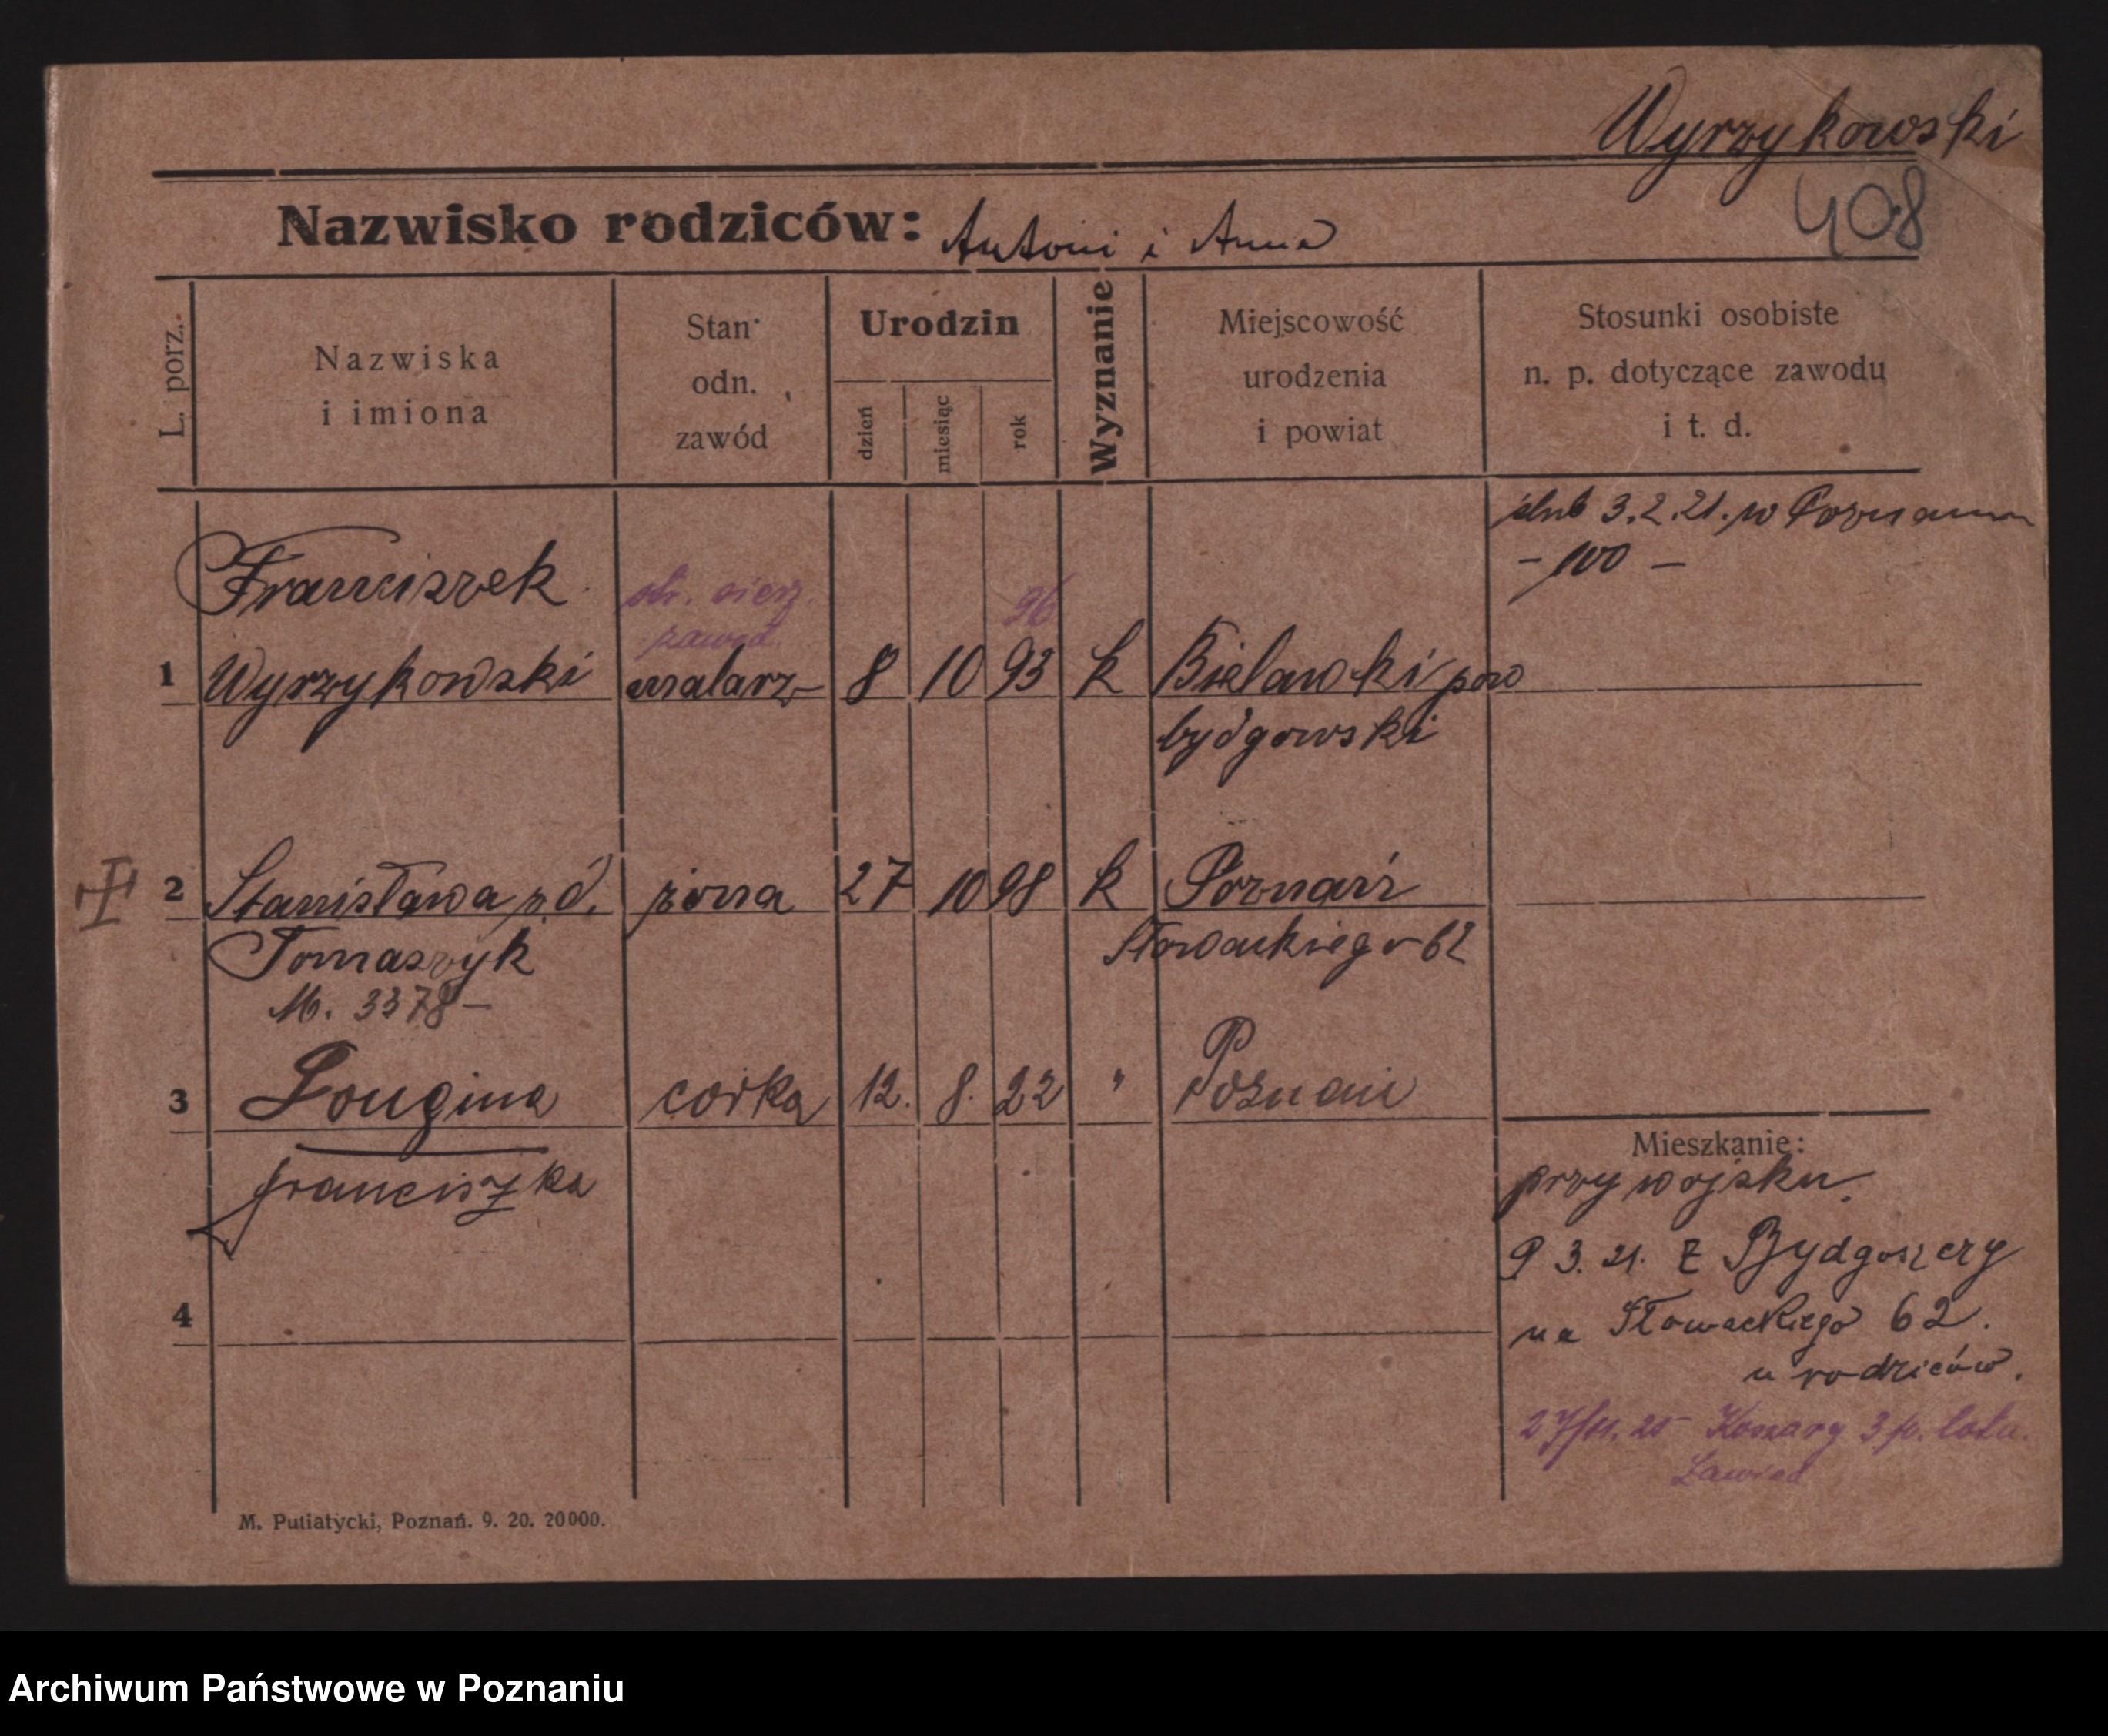 Wyrzykowski
408
Nazwisko rodziców: Antoni i Anna
L. porz.
Nazwiska
i imiona
Stan
odn.
zawód
Urodzin
dzień
miesiąc
rok
Wyznanie
Miejscowość
urodzenia
i powiat
Stosunki osobiste
n. p. dotyczące zawodu
i t. d.
ślub 3.2.21. w Poznaniu
- 100 -
Franciszek
zawod.
96
1 Wyrzykowski malarz 8 10 93 k Bielawki pow
bydgowski
2 Stanisława z d. żona 27 10 98 k Poznań
Tomaszyk Słowackiego 62
M. 3378 -
3 Longina córka 12. 8. 22 " Poznań
franciszka
Mieszkanie:
przy wojsku.
9 3. 21. z Bydgoszczy
4
na Słowackiego 62.
u rodziców.
27/11. 25 Koszary 3 p. lotn.
Ławica
M. Putiatycki, Poznań. 9. 20. 20000.
Archiwum Państwowe w Poznaniu